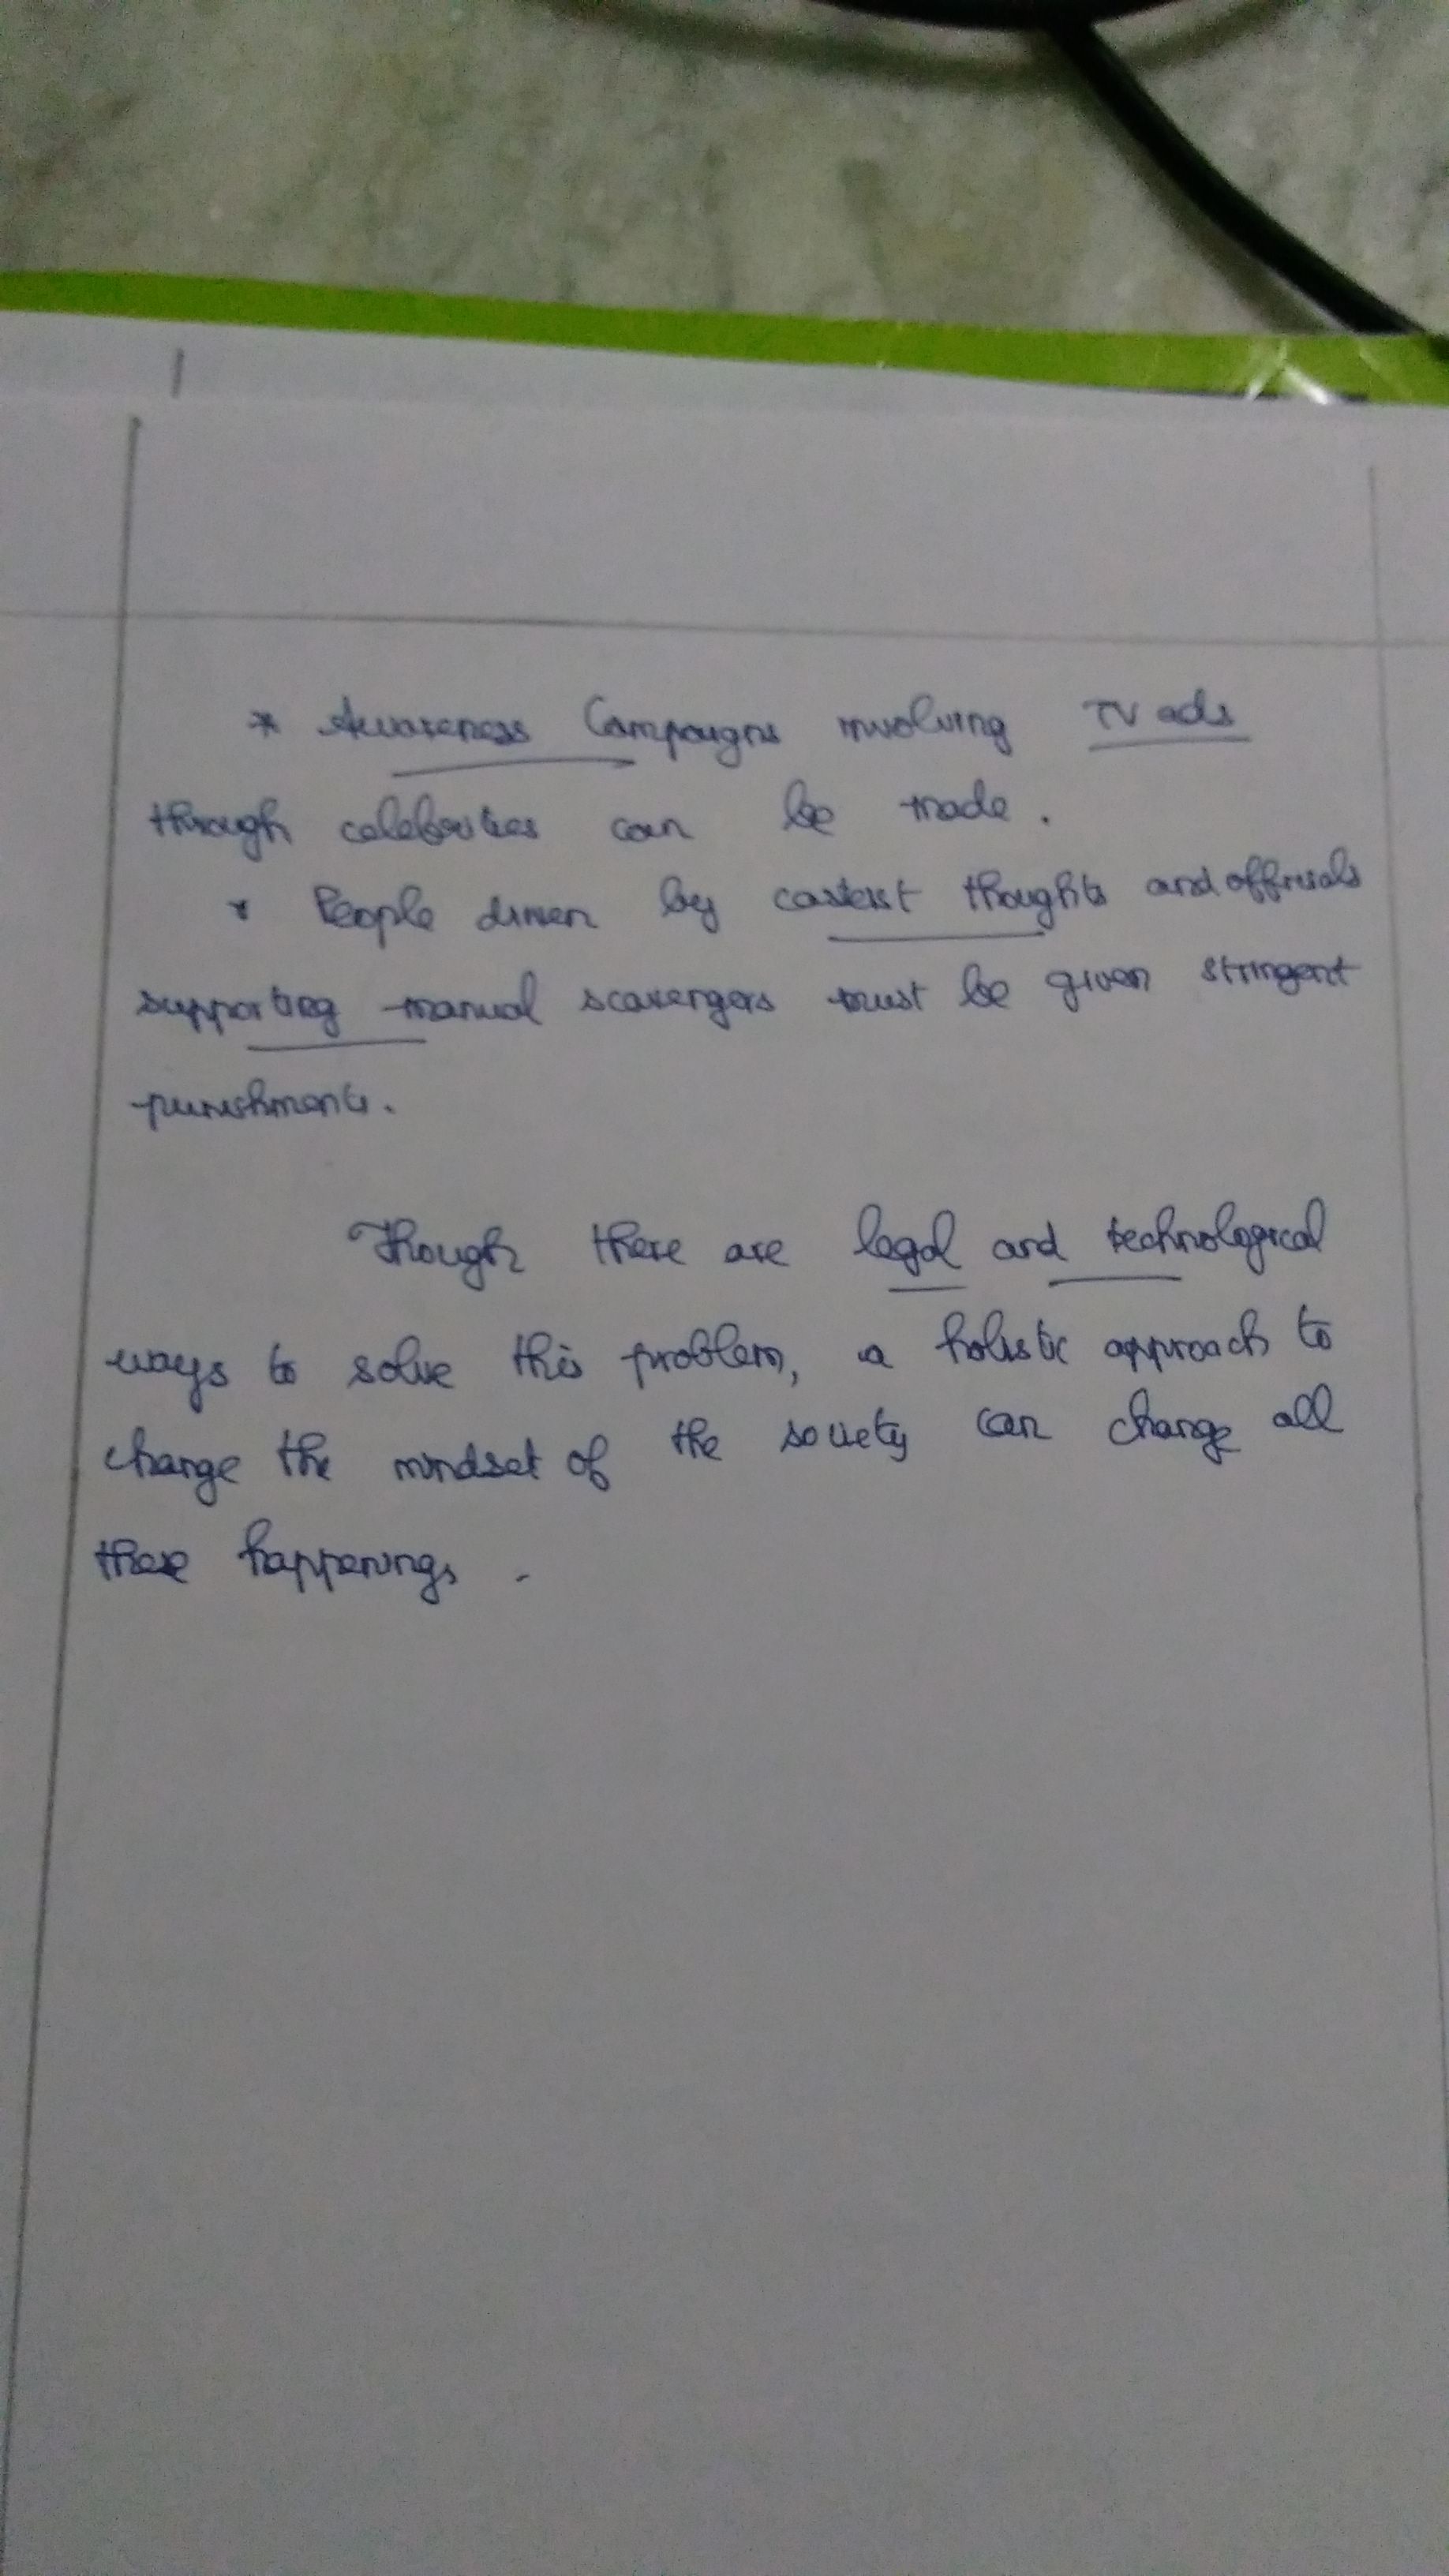 * Awareness Campaigns involving TV ads
through celebrities can be made.
* People driven by casteist thoughts and officials
supporting manual scavengers must be given stringent
punishments.
Though there are legal and technological
ways to solve this problem, a holistic approach to
change the mindset of the society can change all
these happenings.